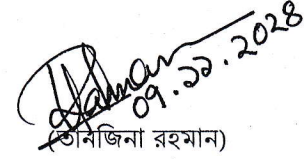 ০৭.১১.২০২৪
(তানজিনা রহমান)